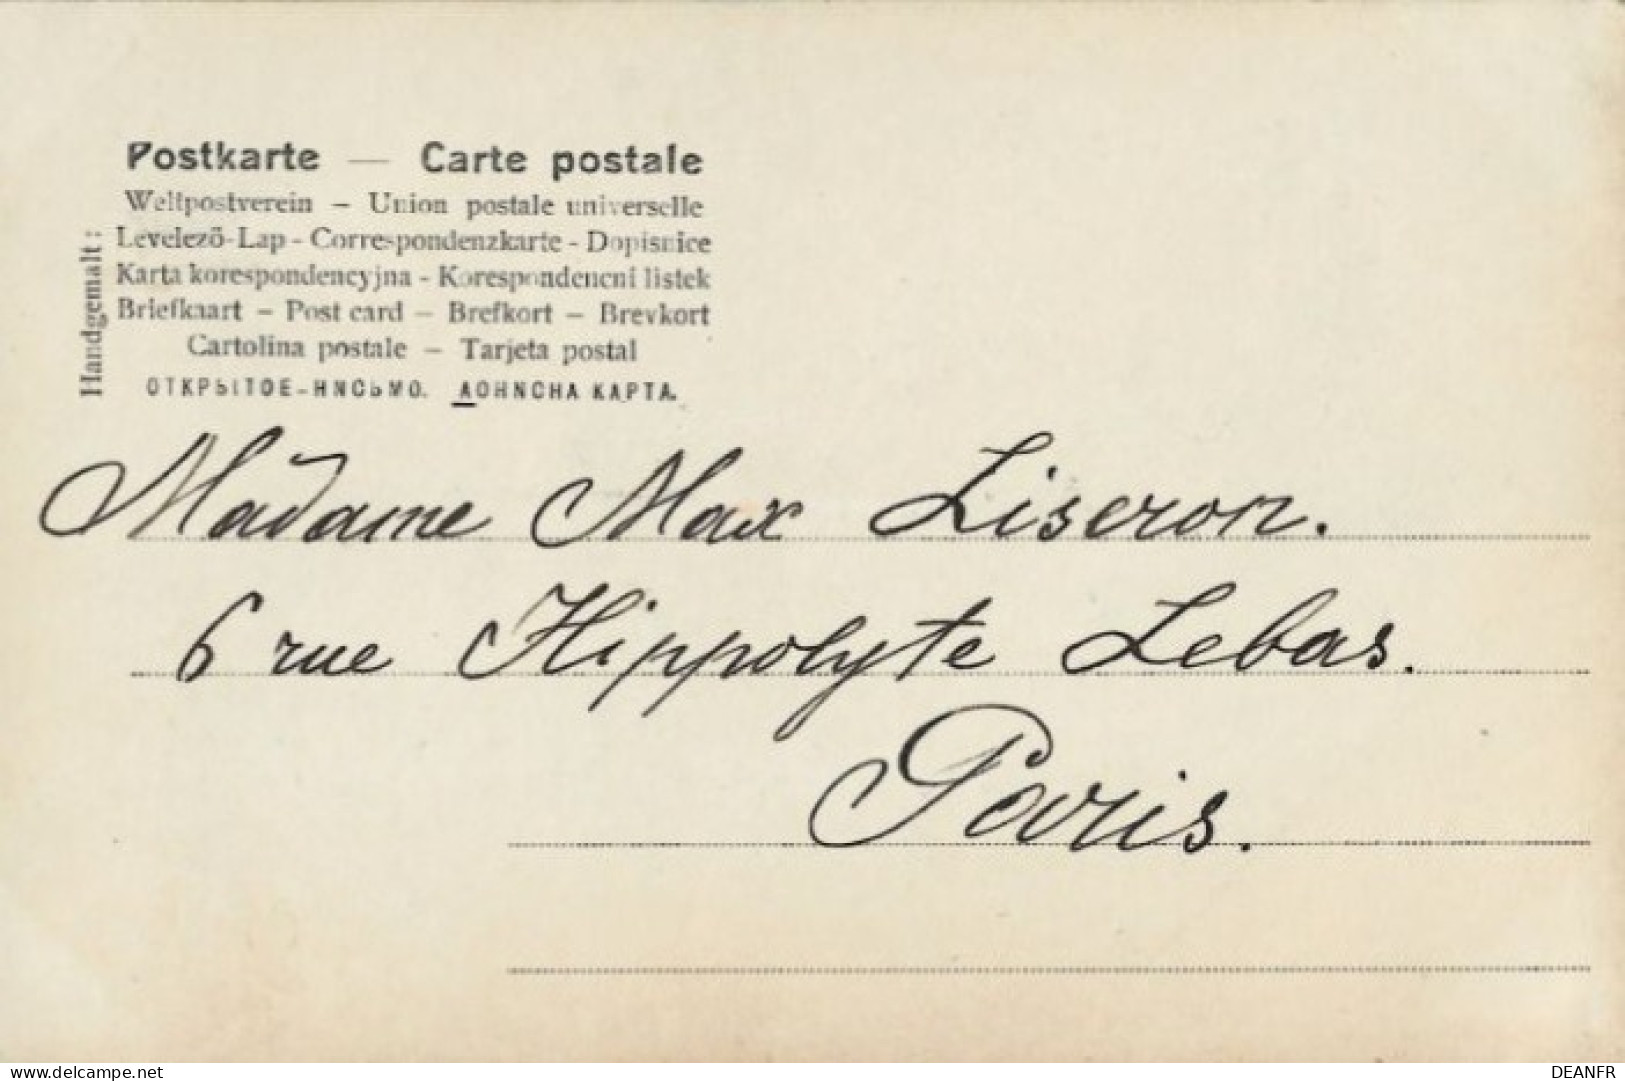 Postkarte — Carte postale
Weltpostverein – Union postale universelle
Levelező-Lap - Correspondenzkarte - Dopisnice
Karta korespondencyjna - Korespondencni listek
Briefkaart – Post card – Brefkort – Brevkort
Cartolina postale – Tarjeta postal
ОТКРЫТОЕ-НИСЬМО. ДОННСНА КАРТА.
Handgemalt:
Madame Max Liseron.
6 rue Hippolyte Lebas.
Paris.
www.delcampe.net
DEANFR